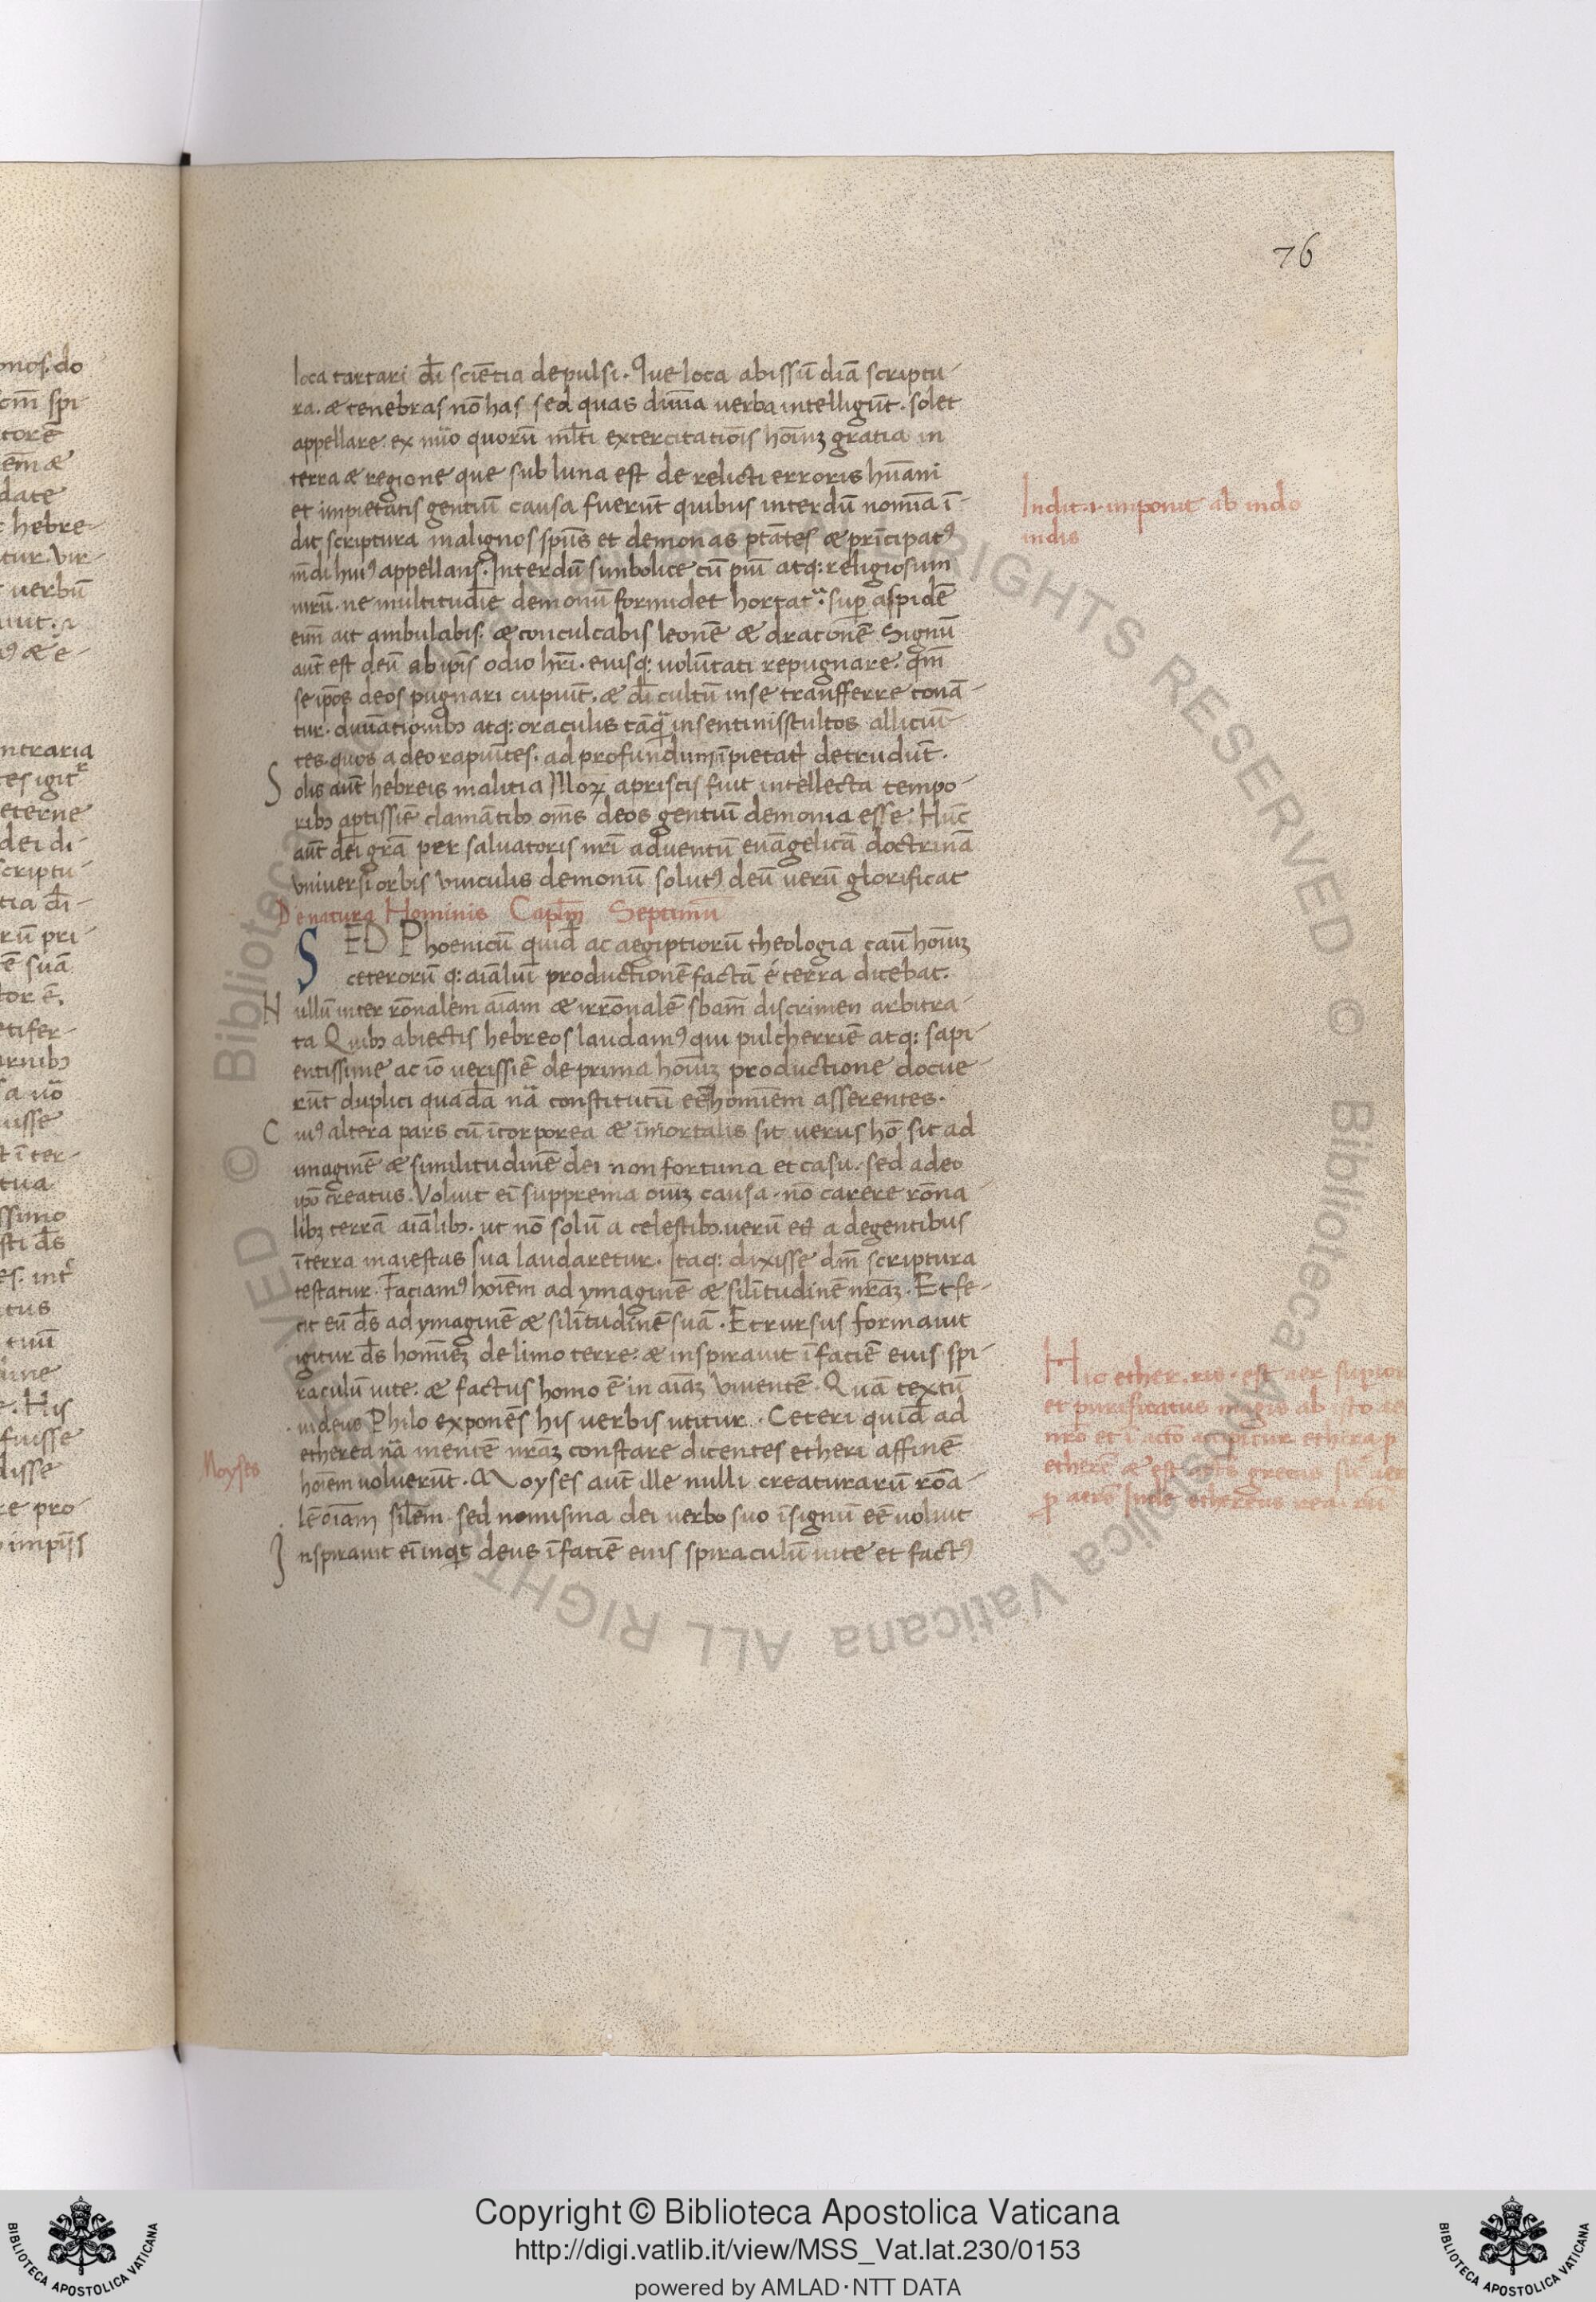 76
loca tartari dei sciētia depulsi. Que loca abissū diā scriptu-
ra. æ tenebras nō has sed quas diuīa uerba intelligūt. solet
appellare. ex nūo quorū mlti exercitatiōis hoīuz gratia in
terra æ regione que sub luna est de relicti erroris hūani
et impietatis gentiū causa fuerūt quibus interdū nomīa ī-
dit scriptura malignos spūs et demonas ptātes æ prīcipatꝰ
mūdi huiꝰ appellans. Interdū simbolice cū piū atq: religiosum
uirū. ne multitudīe demonū formidet hortat᷑. sup aspidē
eīm ait ambulabis. æ conculcabis leonē æ draconē Signū
aūt est deū ab ipīs odio hr̄i. eiusq: uolūtati repugnare. qm̄
se ipōs deos pugnari cupiūt. æ dī cultū in se transferre conā-
tur. diuīationibꝫ atq: oraculis tāq̄ insentinis stultos allicīu-
tes quos a deo rapuītes. ad profundum īpietatꝭ detrudūt.
Solis aūt hebreis malitia Moꝝ apriscis fuit intellecta tempo-
ribꝫ aptissīe clamātibꝫ oms̄ deos gentiū demonia esse. Hūc
aūt dei grā per saluatoris nr̄i aduentū euāgelicā doctrinā
vniuersi orbis vinculis demonū solutꝰ deū uerū glorificat
De natura Hominis Caplm̄ Septimū
SED Phoenicū quid̄ ac aegiptiorū theologia caūm hoīuꝫ
ceterorū q: aīaliuī productionē factā é terra dicebat.
Nullū inter rōnalem aīam æ irrōnalē sbam̄ discrimen arbitra-
ta Quibꝫ abiectis hebreos laudamꝰ qui pulcherrīe atq: sapi-
entissime ac iō uerissīe de prima hoīuꝫ productione docue-
rūt duplici quadā nā constitutū eē homīem asserentes.
Cuiꝰ altera pars cū īcorporea æ īmortalis sit uerus hō sit ad
imaginē æ similitudinē dei non fortuna et casu. sed a deo
ipō creatus. Voluit eī supprema oīuꝫ causa. nō carere rōna-
libꝫ terrā aīālibꝫ. ut nō solū a celestibꝫ. uerū eꝉ a degentibus
ī terra maiestas sua laudaretur. Itaq: dixisse dm̄ scriptura
testatur. Faciamꝰ hoīem ad ymaginē æ silītudinē nrāꝫ. Et fe-
cit eū ds̄ ad ymaginē æ silītudinē suā. Et rursus formauit
igitur ds̄ homīeꝫ de limo terre. æ inspirauit ī faciē euis spi-
raculū uite. æ factus homo ē in aīāꝫ viuentē. Quā textū
iudeus Philo exponēs his uerbis utitur. Ceteri quid̄ ad
etherea nā mentē nrāꝫ constare dicentes etheri affinē
hoīem uoluerūt. Moyses aūt ille nulli creaturarū rōa-
lē oīam silem̄. sed nomisma dei uerbo suo īsignū eē uoluit
Inspirauit eī inqt deus ī faciē euis spiraculū uite et factꝰ
Indit .i. imponit ab indo
indis
Moyses
Hic ether. ris. est aer supior
et purificatus magis ab isto ae
nrō et ī actō accipitur ethera p
etherē æ est grecus sic aer
p aerē Inde ethereus rea. rū
Copyright © Biblioteca Apostolica Vaticana
http://digi.vatlib.it/view/MSS_Vat.lat.230/0153
powered by AMLAD·NTT DATA